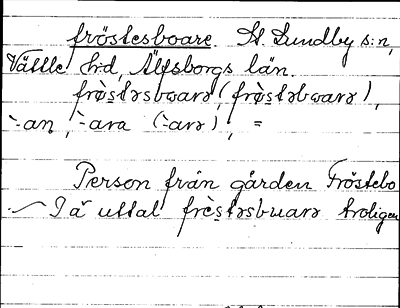 fröstesboare. St. Lundby s:n,
Vättle h:d, Älfsborgs län.
frø̀stəsbɯarə (frø̀stəbɯarə),
-̀an, -̀ara (-̀arə), =
Person från gården Fröstebo
I ä uttal frèstəsbɯarə troligen